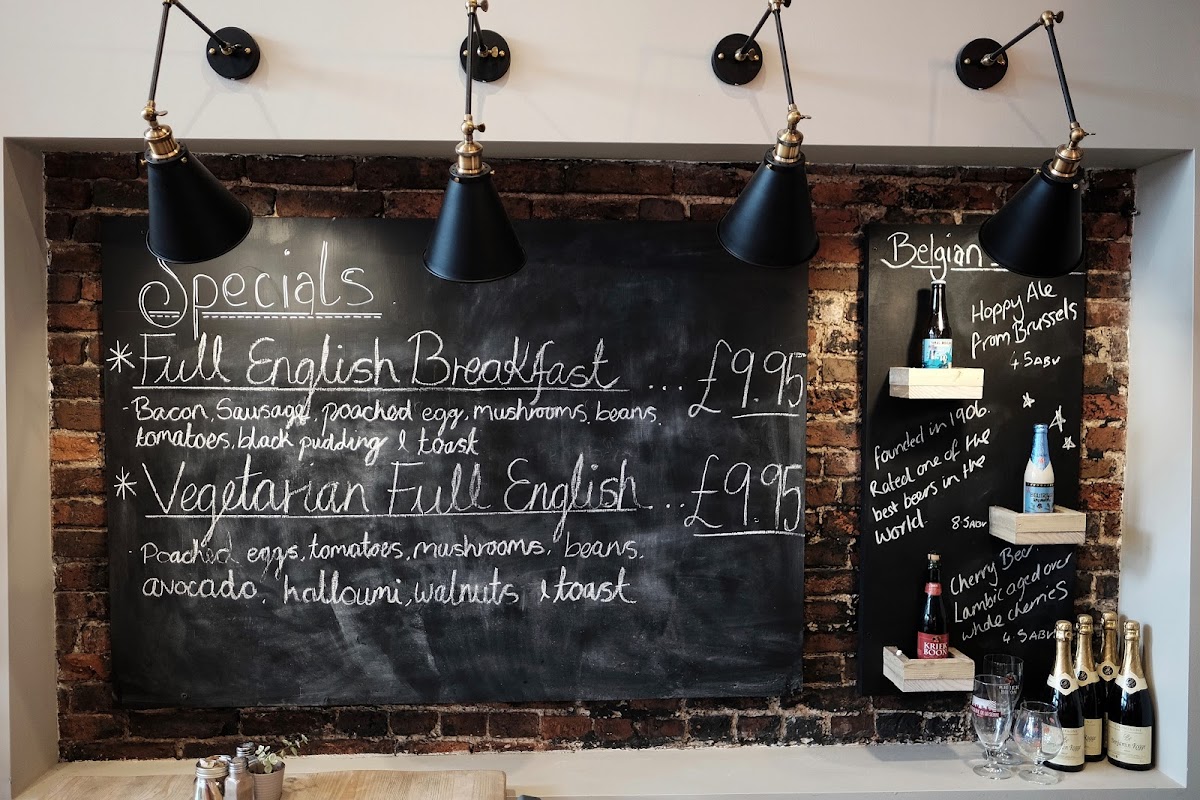 Specials
* Full English Breakfast ... £9.95
- Bacon, Sausage, poached egg, mushrooms, beans,
tomatoes, black pudding & toast
* Vegetarian Full English ... £9.95
- Poached eggs, tomatoes, mushrooms, beans,
avocado, halloumi, walnuts & toast
Belgian
Hoppy Ale
from Brussels
4.5 ABV
founded in 1906.
Rated one of the
best beers in the
World.
8.5 ABV
Cherry Beer.
Lambic aged over
whole cherries
4.5 ABV
KRIEK
BOON